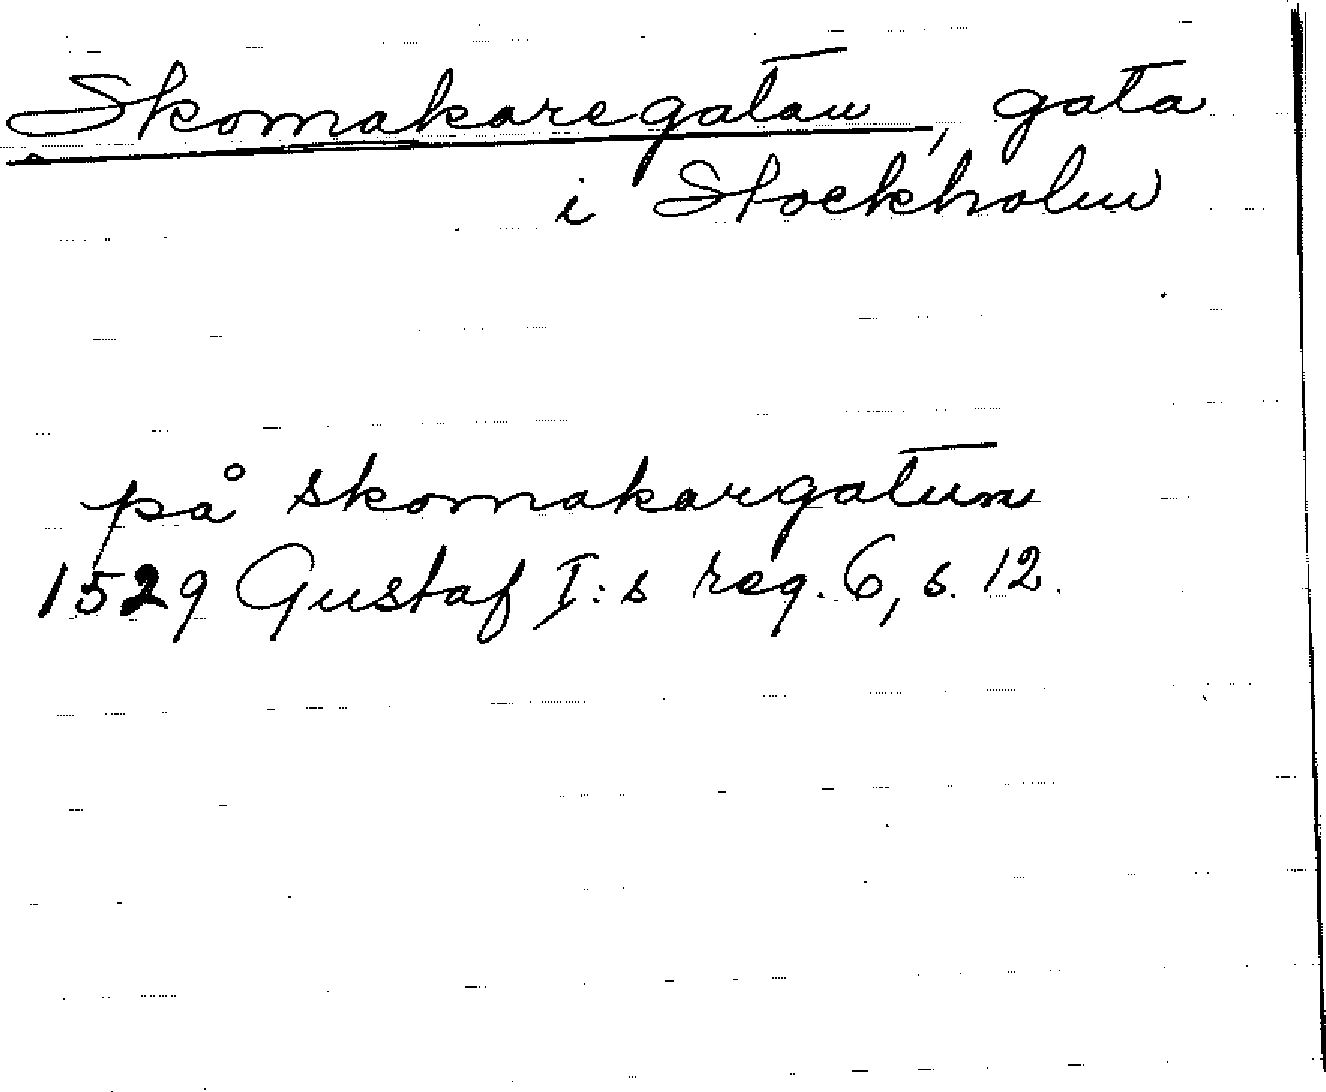 Skomakaregatan, gata
i Stockholm
på skomakargatun
1529 Gustaf I:s reg. 6, s. 12.